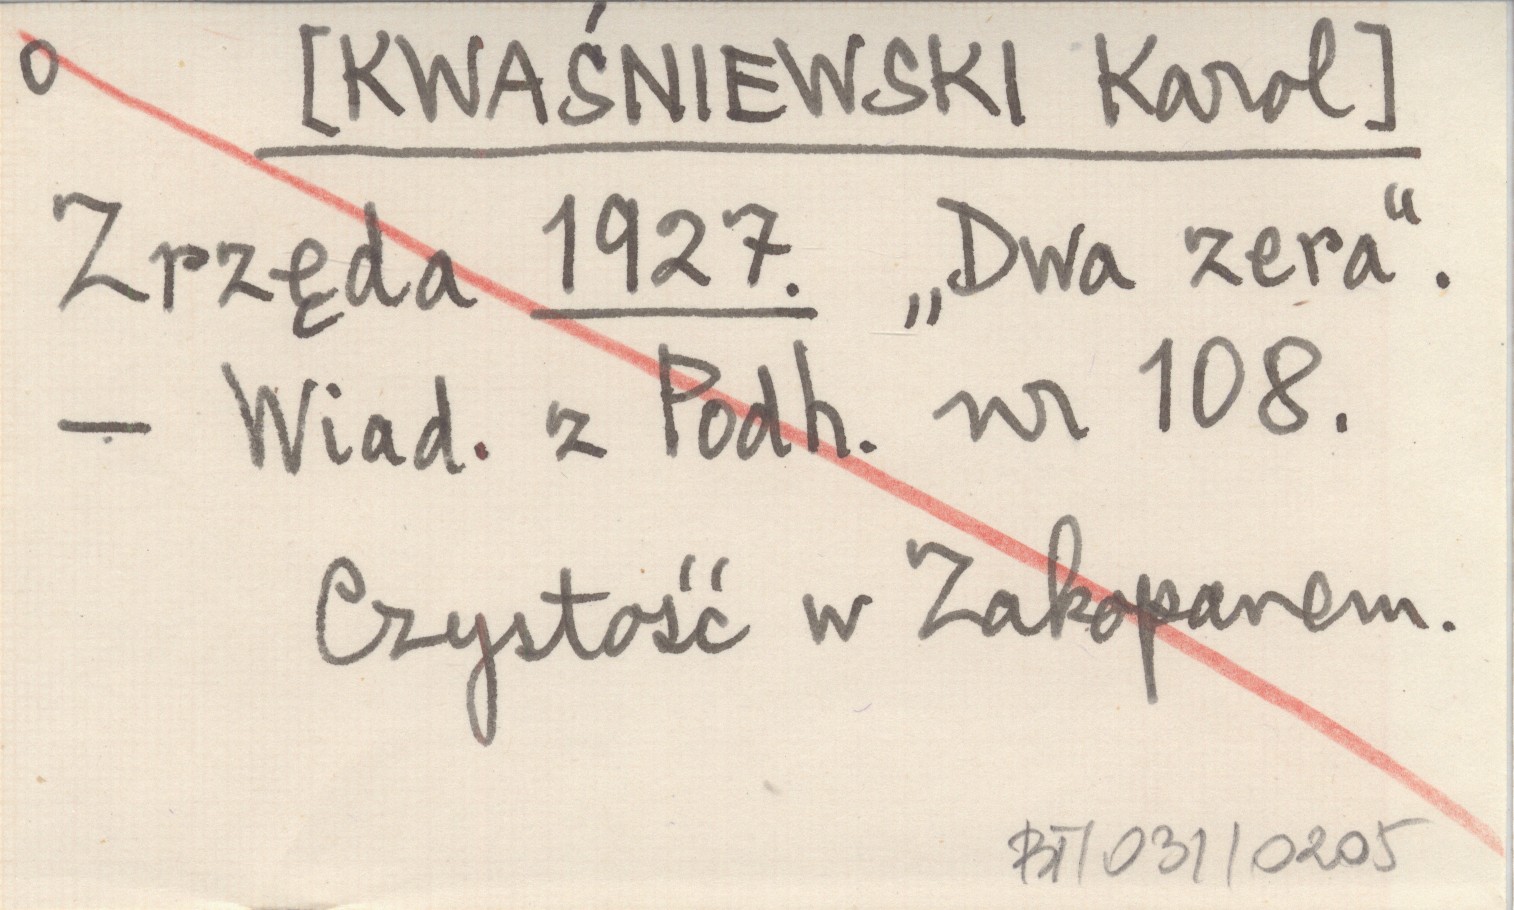 o [KWAŚNIEWSKI Karol]
Zrzęda 1927. „Dwa zera“.
— Wiad. z Podh. nr 108.
Czystość w Zakopanem.
BT/031/0205